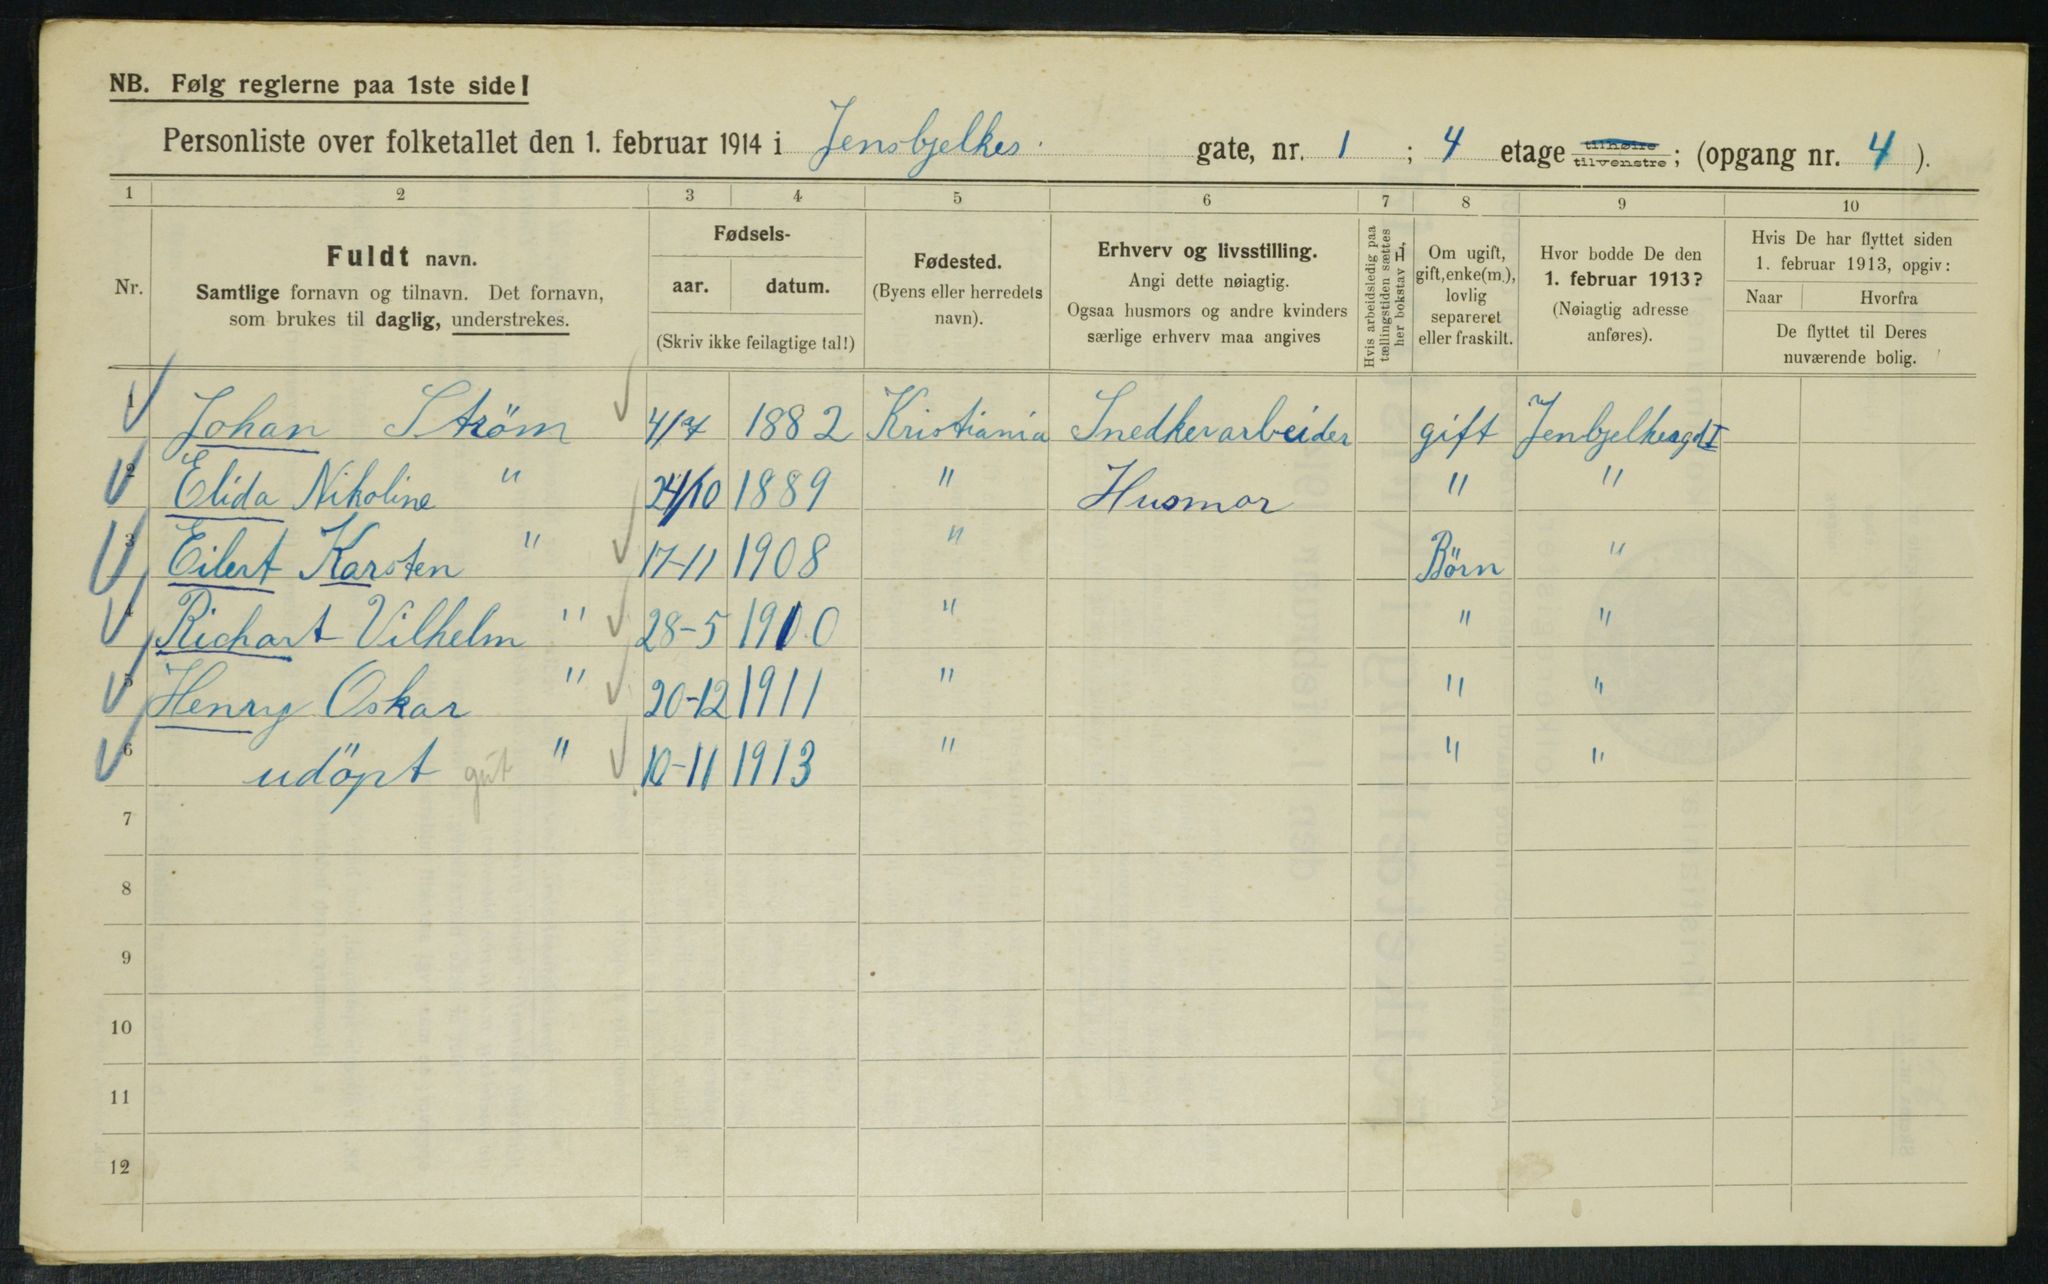 NB. Følg reglerne paa 1ste side!
Personliste over folketallet den 1. februar 1914 i Jensbjelkes gate, nr. 1 ; 4 etage tilhøire tilvenstre; (opgang nr. 4 ).
1 2 3 4 5 6 7 8 9 10
Nr.
Fuldt navn.
Samtlige fornavn og tilnavn. Det fornavn,
som brukes til daglig, understrekes.
Fødsels-
aar. datum.
(Skriv ikke feilagtige tal!)
Fødested.
(Byens eller herredets
navn).
Erhverv og livsstilling.
Angi dette nøiagtig.
Ogsaa husmors og andre kvinders
særlige erhverv maa angives
Hvis arbeidsledig paa
tællingstiden sættes
her bokstav L,
Om ugift,
gift, enke(m.),
lovlig
separeret
eller fraskilt.
Hvor bodde De den
1. februar 1913?
(Nøiagtig adresse
anføres).
Hvis De har flyttet siden
1. februar 1913, opgiv:
Naar Hvorfra
De flyttet til Deres
nuværende bolig.
1 Johan Ström 4/7 1882 Kristiania Snedkerarbeider gift Jenbjelkesgdt 1
2 Elida Nikoline " 24/10 1889 " Husmor " "
3 Eilert Karsten " 17-11 1908 " Börn "
4 Richart Vilhelm " 28-5 1910 " " "
5 Henry Oskar " 20-12 1911 " " "
6 udöpt gut " 10-11 1913 " " "
7
8
9
10
11
12